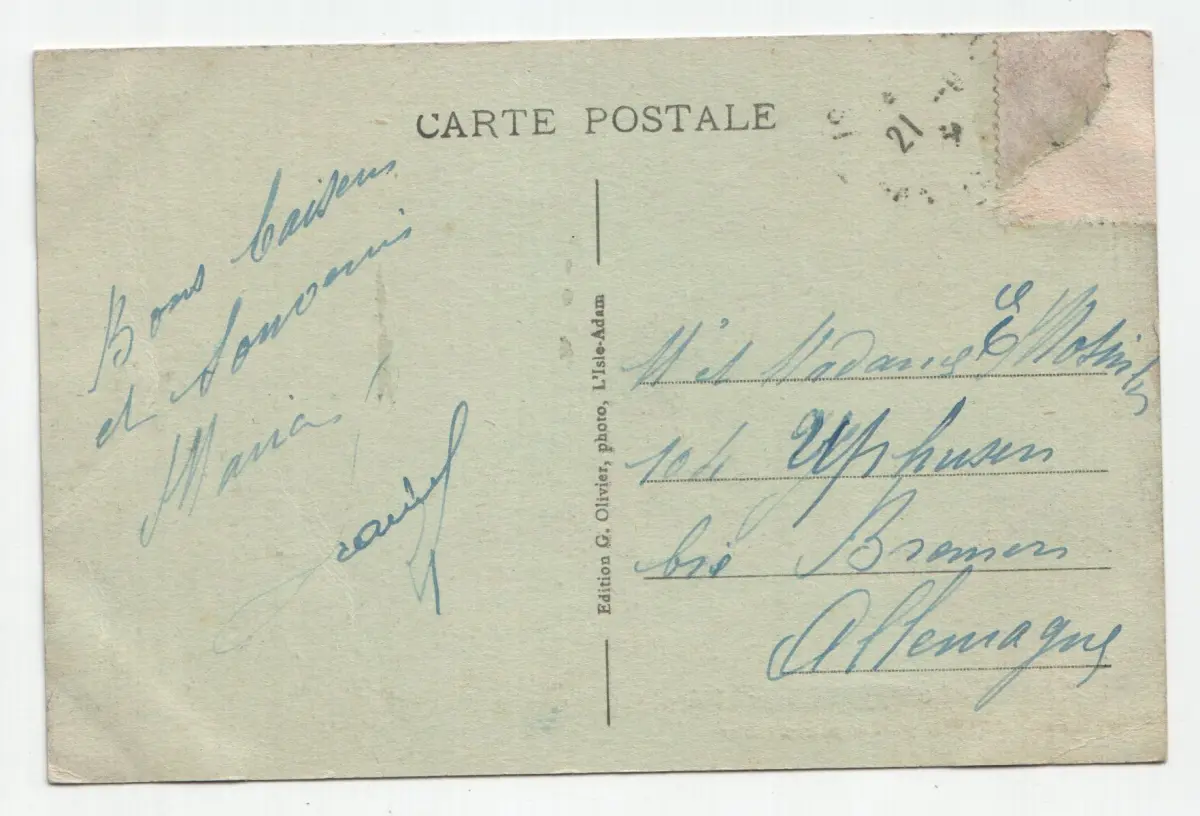 CARTE POSTALE
21
Bons baisers
et Souvenirs
Maria
Edition G. Olivier, photo, L'Isle-Adam
M et Madame E
104 Uphusen
bie Bremen
Allemagne